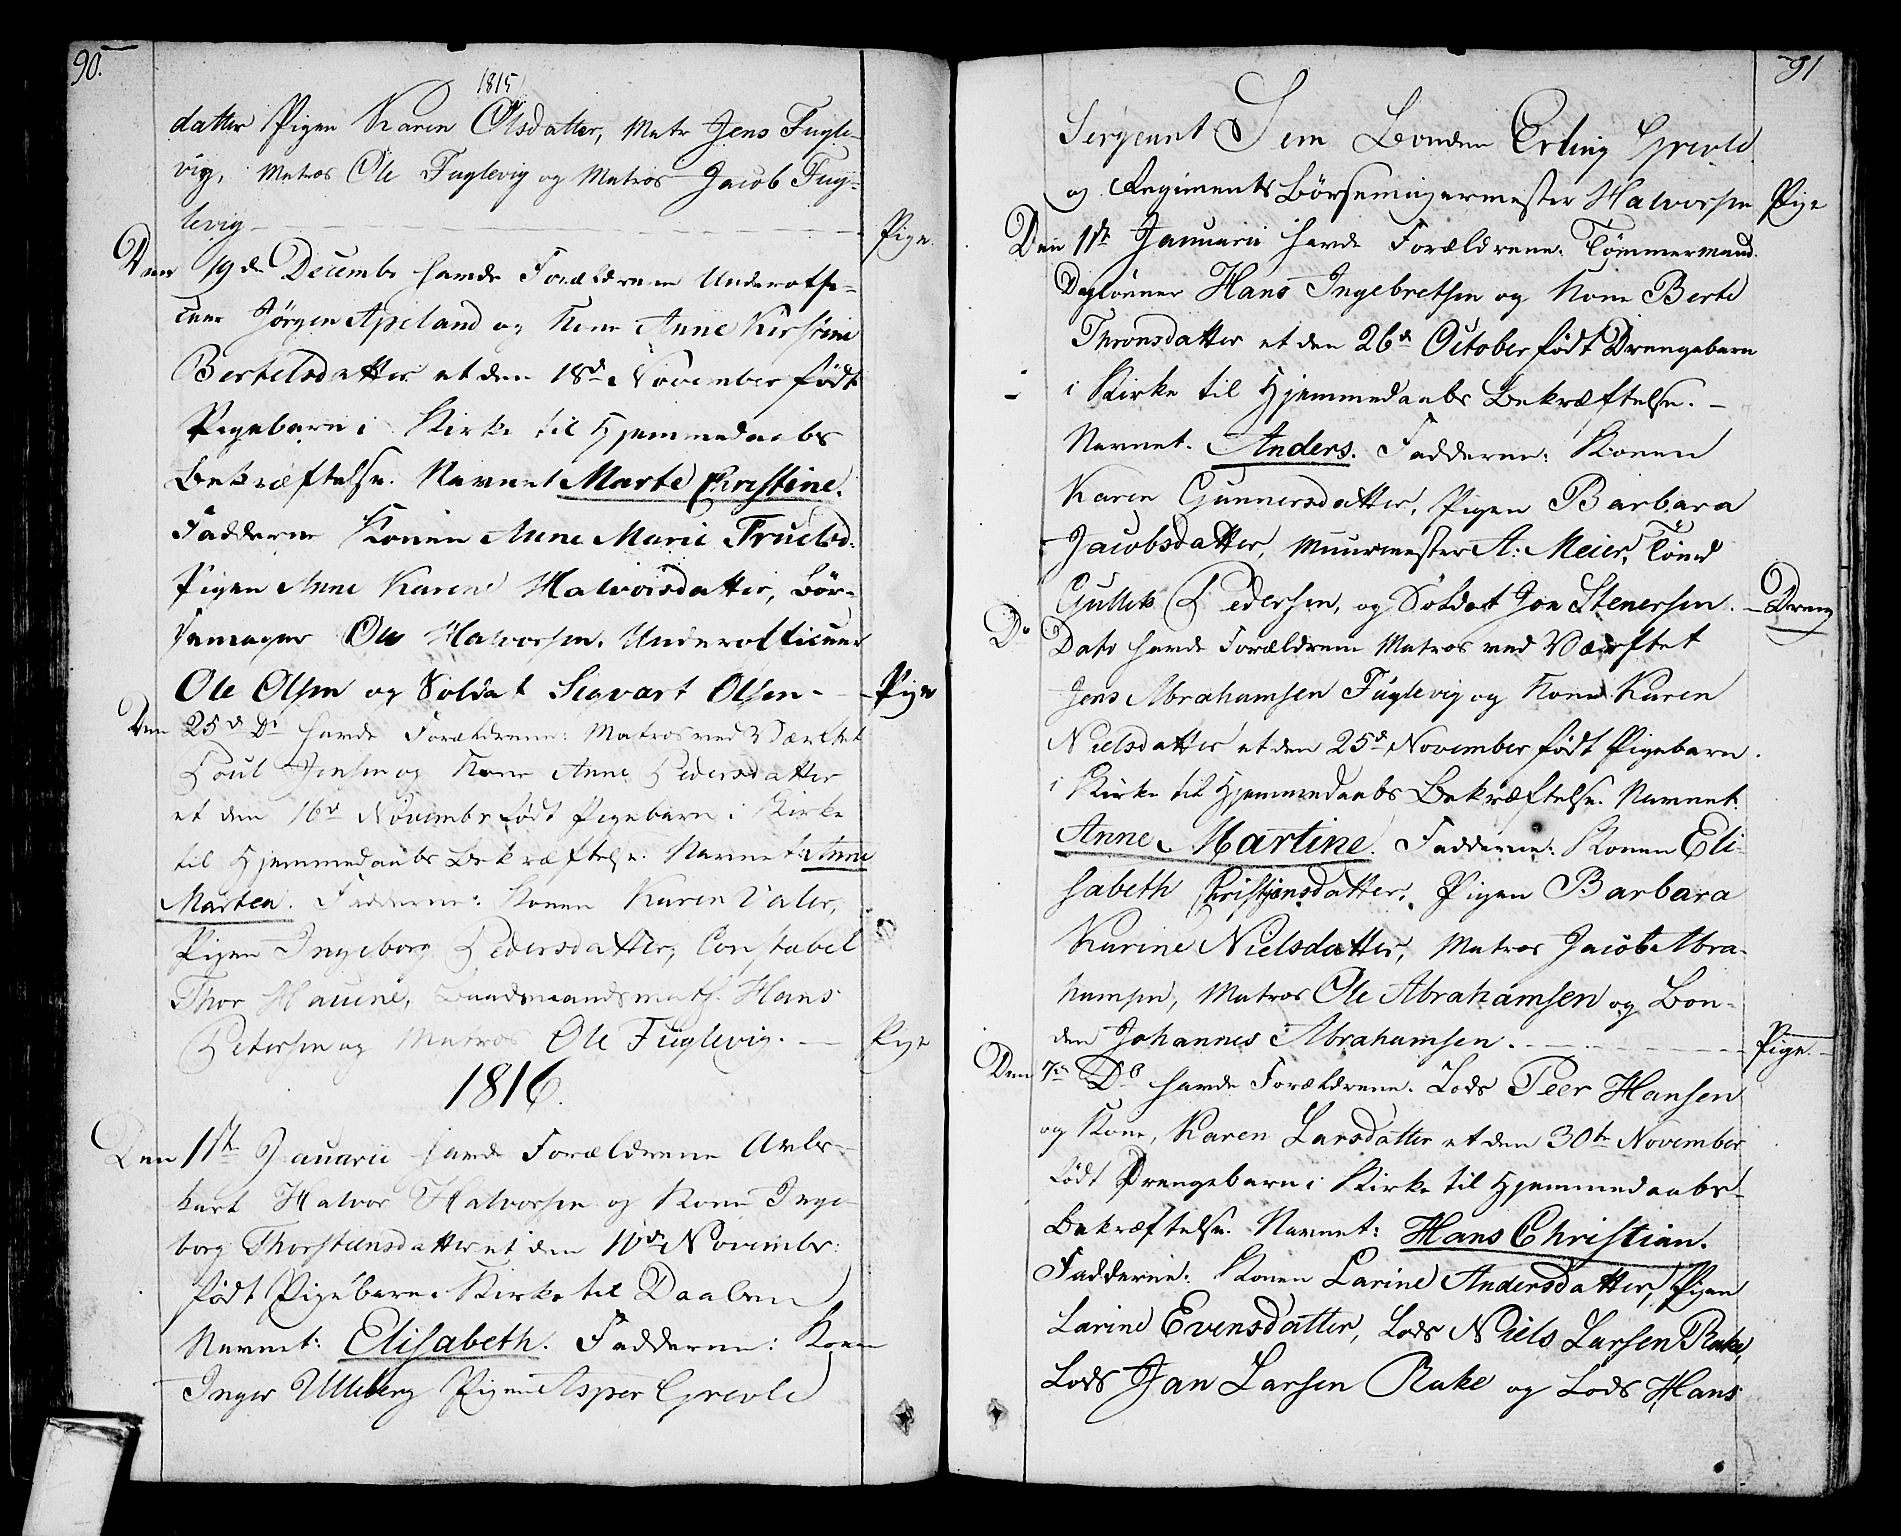 90.
1815
datter Pigen Karen Olsdatter, Matr Jens Fugle-
vig, Matros Ole Fuglevig og Matros Jacob Fug-
levig - Pige.
Den 19de Decembr havde Forældrene Underoffi-
ceer Jörgen Apeland og Kone Anne Kirstine
Bertelsdatter et den 18de November födt
Pigebarn i Kirke til Hjemmedaabs
Bekræftelse. Navnet Marte Christine.
Fadderne Konen Anne Marie Truelsd.
Pigen Anne Karine Halvorsdatter, Bör-
semager Ole Halvorsen, Underofficeer
Ole Olsen og Soldat Segvart Olsen - Pige
Den 25de Do havde Forældrene: Matros ved Værftet
Poul Jensen og Kone Anne Pedersdatter
et den 16de Novembr födt Pigebarn i Kirke
til Hjemmedaabs Bekræftelse. Navnet: Anne
Martea. Fadderne: Konen Karen Valer,
Pigen Ingeborg Pedersdatter, Constabel
Thor Hauene, Baadsmandsmath. Hans
Petersen og Matros Ole Fuglevig. - Pige
1816.
Den 1ste Januarii havde Forældrene Arbs-
karl Halvor Halvorsen og Kone Inge-
borg Thorsteensdatter et den 10de Novembr:
födt Pigebarn i Kirke til Daaben
Navnet: Elisabeth. Fadderne: Konen
Inger Ulleberg Pigen Asper Grevle
91
Sergeant Sem Bonden Erling Grevle
og Regiments Börsemagermester Halvorsen Pige
Den 1ste Januarii havde Forældrene: Tömmermand.
Daglönner Hans Ingebretsen og Kone Berte
Thronsdatter et den 26de October födt Drengebarn
i Kirke til Hjemmedaabs Bekræftelse. -
Navnet. Anders. Fadderne: Konen
Karen Gunnersdatter, Pigen Barbara
Jacobsdatter, Muurmester A: Meier, Tömd
Gullik Pedersen, og Soldat Jon Stenersen. - Dreng
Do Dato havde Forældrene Matros ved Værftet
Jens Abrahamsen Fuglevig og Kone Karen
Nielsdatter et den 25de November födt Pigebarn
i Kirke til Hjemmedaabs Bekræftelse. Navnet
Anne Martine. Fadderne: Konen Eli-
sabeth Christensdatter, Pigen Barbara
Karine Nielsdatter, Matros Jacob Abra-
hamsen, Matros Ole Abrahamsen og Bon-
den Johannes Abrahamsen. - Pige. -
Den 7de Do havde Forældrene. Lods Peer Hansen
og Kone, Karen Larsdatter et den 30te November
födt Drengebarn i Kirke til Hjemmedaabs-
Bekræftelse. Navnet: Hans Christian.
Fadderne: Konen Larine Andersdatter, Pigen
Larine Evensdatter, Lods Niels Larsen Rake,
Lods Jan Larsen Rake og Lods Hans